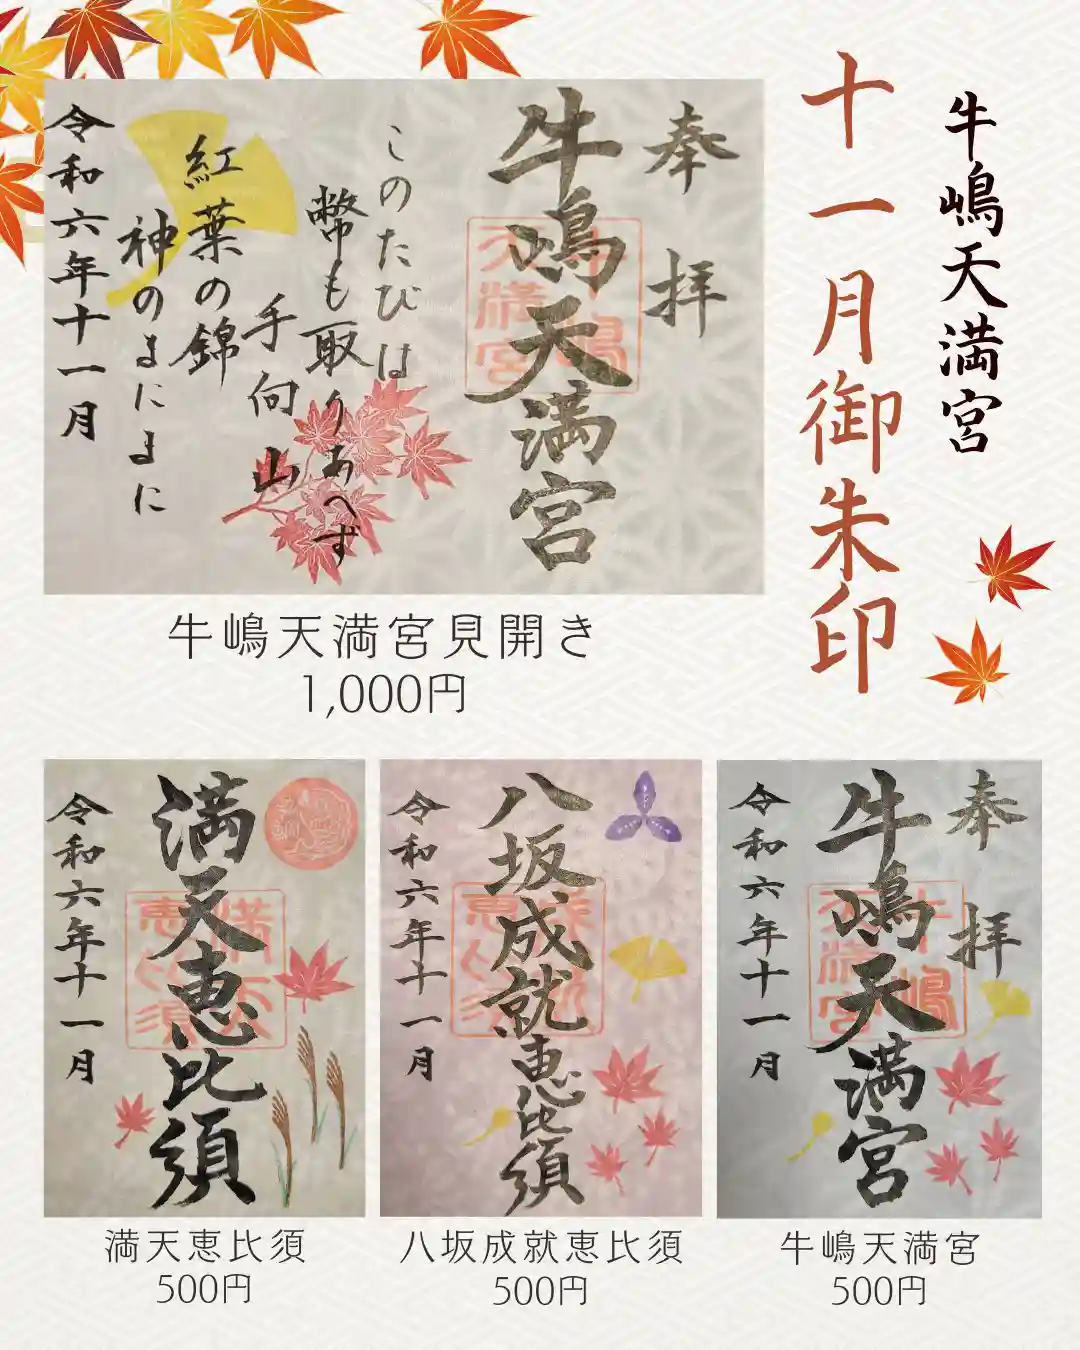 牛嶋天満宮
十一月御朱印
奉拝
牛嶋天満宮
このたびは
幣も取りあへず
手向山
紅葉の錦
神のまにまに
令和六年十一月
牛嶋天満宮見開き
1,000円
満天恵比須
令和六年十一月
満天恵比須
500円
八坂成就恵比須
令和六年十一月
八坂成就恵比須
500円
奉拝
牛嶋天満宮
令和六年十一月
牛嶋天満宮
500円